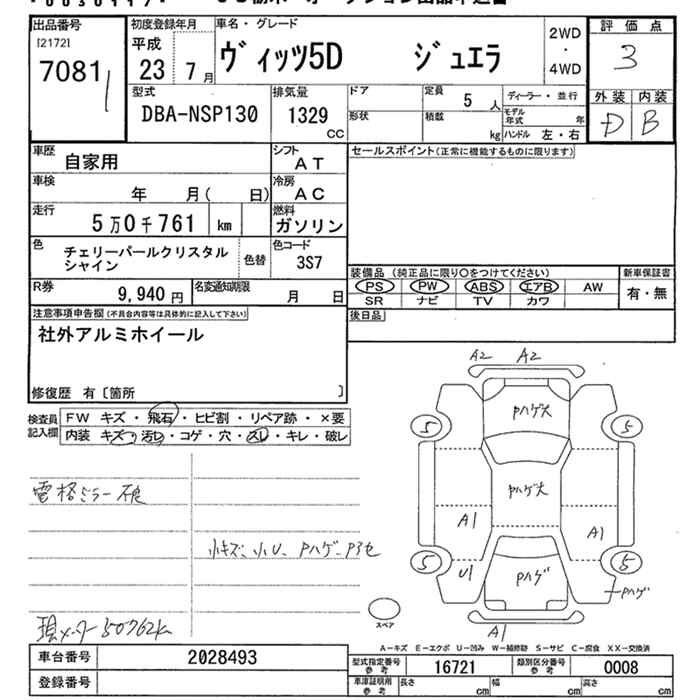 出品番号
[2172]
7081
初度登録年月
平成
23 7月
車名・グレード
ヴィッツ5D ジュエラ
2WD
・
4WD
評価点
3
外装 内装
D B
型式
DBA-NSP130
排気量
1329
CC
ドア
定員
5人
ディーラー・並行
形状
積載
kg
モデル年式 年
ハンドル 左・右
車歴
自家用
シフト
AT
セールスポイント(正常に機能するものに限ります)
車検
年 月( 日)
冷房
AC
走行
5万0千761 km
燃料
ガソリン
色
チェリーパールクリスタル
シャイン
色替
色コード
3S7
装備品 (純正品に限り○をつけてください)
新車保証書
PS PW ABS エアB AW
有・無
SR ナビ TV カワ
R券
9,940円
名変通知期限
月 日
後日品
注意事項申告欄(不具合内容等は具体的に記入して下さい)
社外アルミホイール
修復歴 有〔箇所 〕
検査員
記入欄
FW キズ・飛石・ヒビ割・リペア跡・×要
内装 キズ・汚レ・コゲ・穴・スレ・キレ・破レ
電格ミラー
小キズ、小U、Pハゲ、
現メーター50762k
A2 A2
Pハゲ大
5 5
Pハゲ大
A1 A1
5 5
U1
Pハゲ
Pハゲ
A1
スペア
A-キズ E-エクボ U-凹み W-補修跡 S-サビ C-腐食 XX-交換済
車台番号
2028493
型式指定番号
参考
16721
類別区分番号
参考
0008
登録番号
車庫証明用
参考
長さ cm 幅 cm 高さ cm